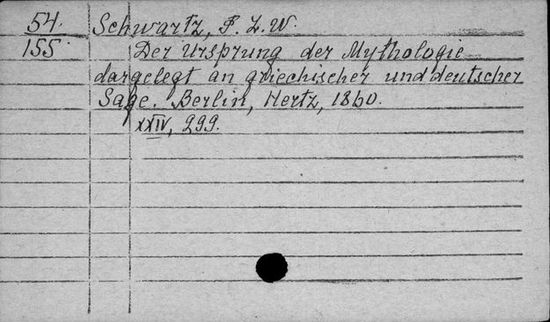 54. Schwartz, F. L. W.
155 Der Ursprung der Mythologie
dargelegt an griechischer und deutscher
Sage. Berlin, Hertz, 1860.
XXIV, 299.